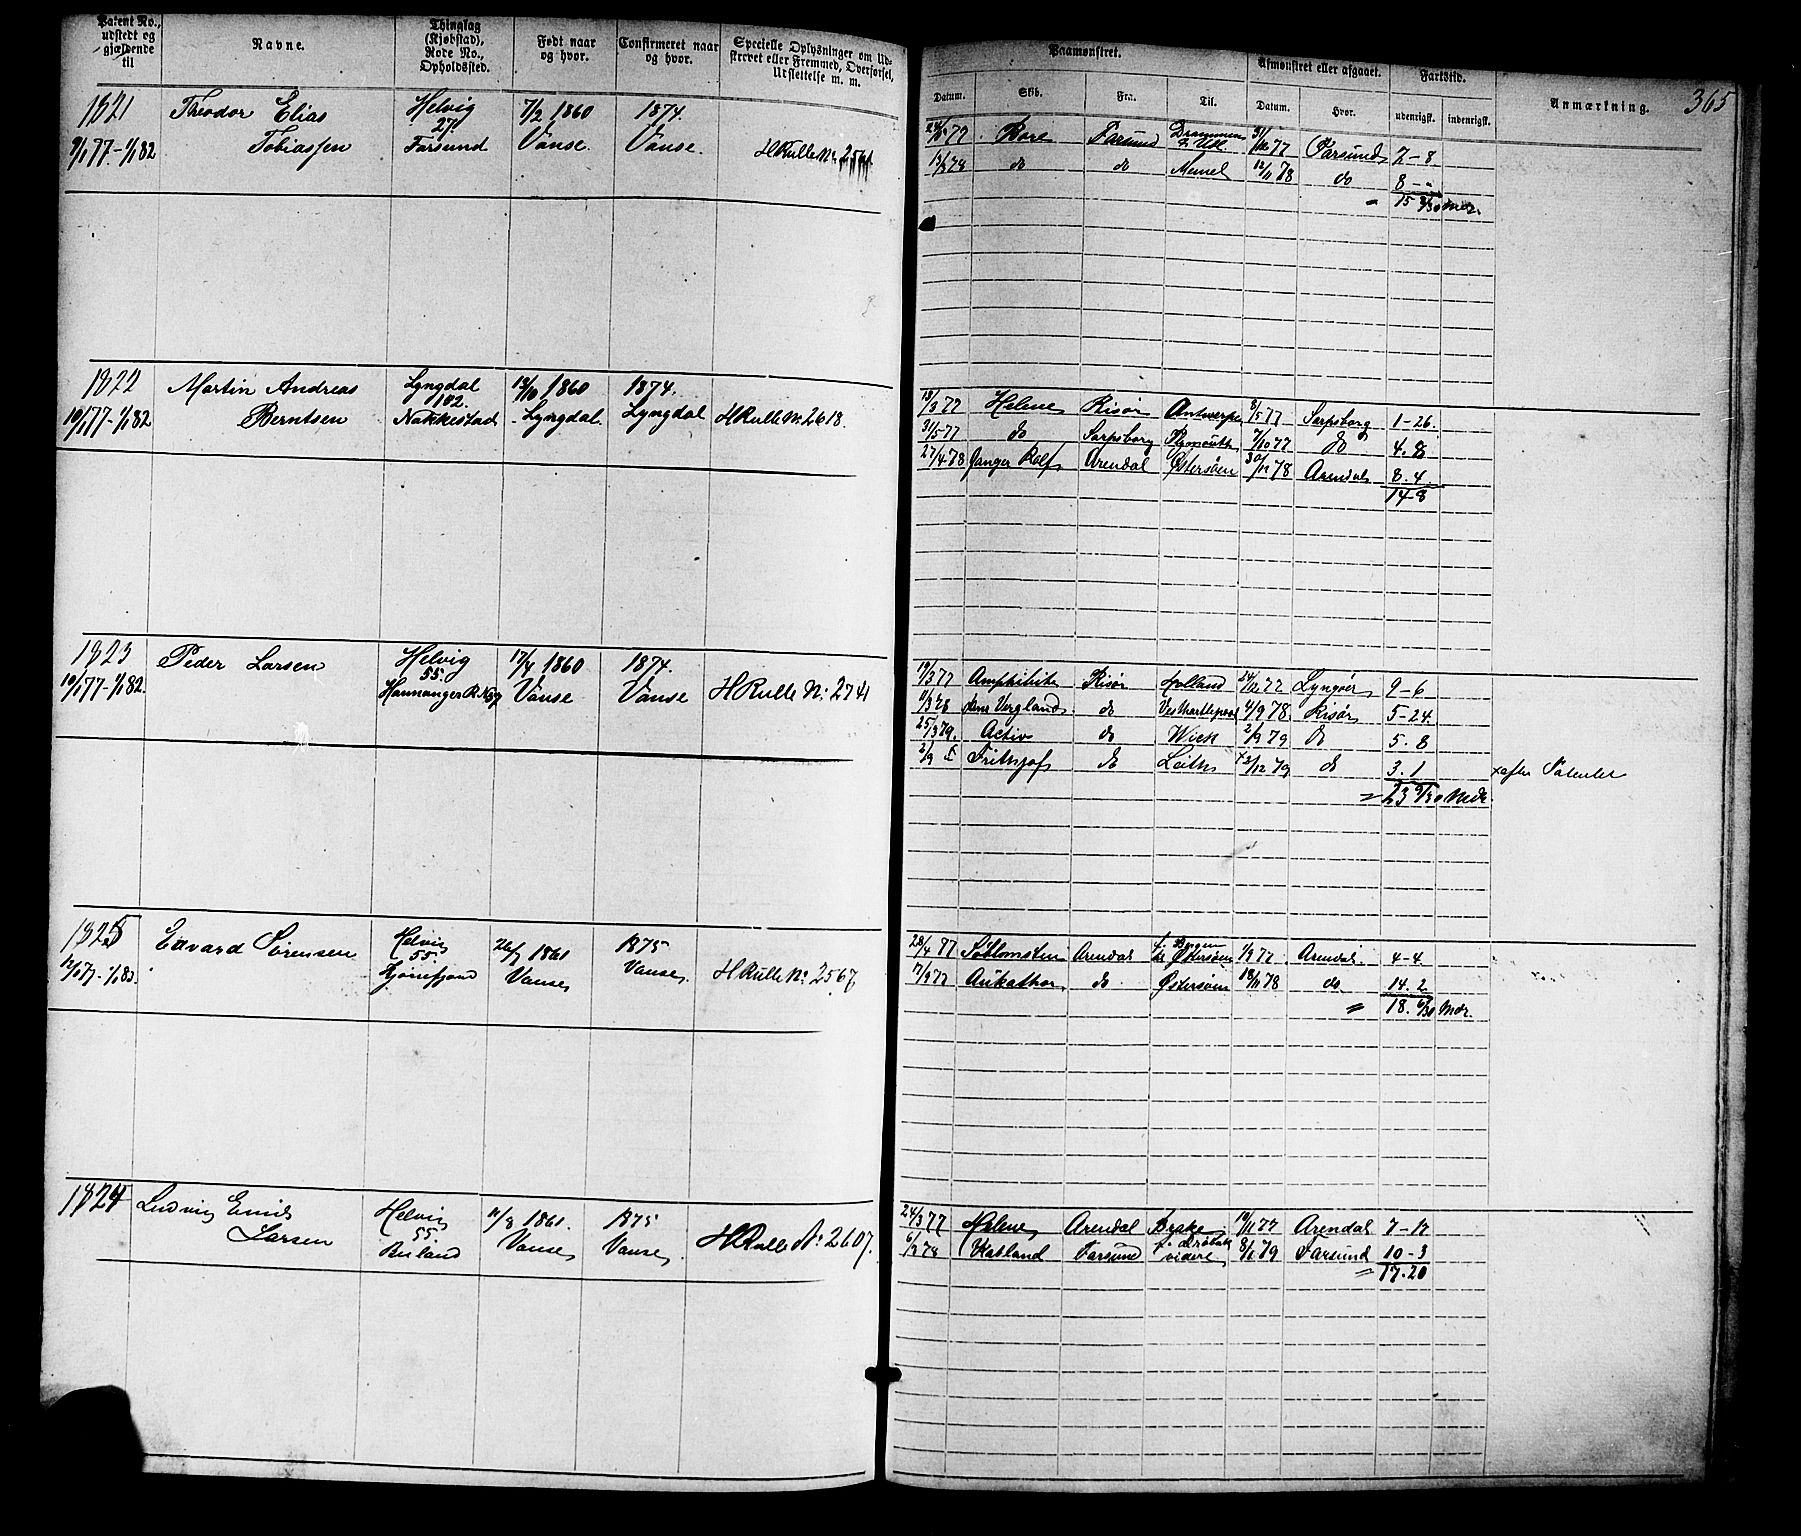 Patent No., udstedt og gjældende til
Navne.
Thinglag (Kjøbstad), Rode No., Opholdssted.
Født naar og hvor.
Confirmeret naar og hvor.
Specielle Oplysninger om Udskrevet eller Fremmed, Overførsel, Udslettelse m. m.
Paamønstret.
Afmønstret eller afgaaet.
Fartstid.
Anmærkning.
365
Datum. Skib. Fra. Til. Datum. Hvor. udenrigsk. indenrigsk.
1821 Theodor Elias Helvig 7/2 1860 1874.
27.
9/1 77-1/1 82 Tobiassen Farsund Vanse. Vanse. HRulle No 2561
77. Farsund Drammen 31/12 77 Farsund 7-8
13/3 78 do do Memel 12/11 78 do 8-"
" 15 8/30 Mdr.
1822 Martin Andreas Lyngdal 13/10 1860 1874.
102.
10/1 77-1/1 82 Berntsen Nakkestad Lyngdal. Lyngdal HRulle No 2618.
13/3 77 Helene Risør Antwerpen 8/5 77 Sarpsborg 1-26.
31/5 77 do Sarpsborg Plymouth 7/10 77 do 4.8
27/4 78 Ganger Rolf Arendal Østersøen 30/12 78 Arendal 8.4.
14-8
1823 Peder Larsen Helvig 17/4 1860 1874.
55.
10/1 77-1/1 82. Vanse Vanse HRulle No 2741
19/3 77 Amphitrite Risør Holland 24/12 77 Lyngør 9-6
11/3 78 Vergland. do Vesthartlepool 4/9 78. Risør 5-24
25/3 79. Activ do Wick 2/9 79 do 5.8
2/9 x Frithjof do Leith x 3/12 79 do 3.1 x efter Patentet
= 23 9/30 Mdr.
1825 Edvard Sørensen Helvig 26/7 1861 1875
55.
12/1 77-1/1 82. Vanse Vanse HRulle No 2567
28/4 77 Arendal f. Bergen til Østersøen 1/9 77 Arendal. 4-4
7/9 77 do. Østersøen 18/11 78 do 14.2
" 18. 6/30 Mdr.
1824 Ludvig Emil Helvig 11/8 1861. 1875
55.
Larsen Vanse Vanse HRulle No 2607.
24/3 77 Helene Arendal Brake 10/11 77 Arendal 7-17
6/3 78 Kabland Farsund videre 8/1 79 Farsund 10-3
= 17.20